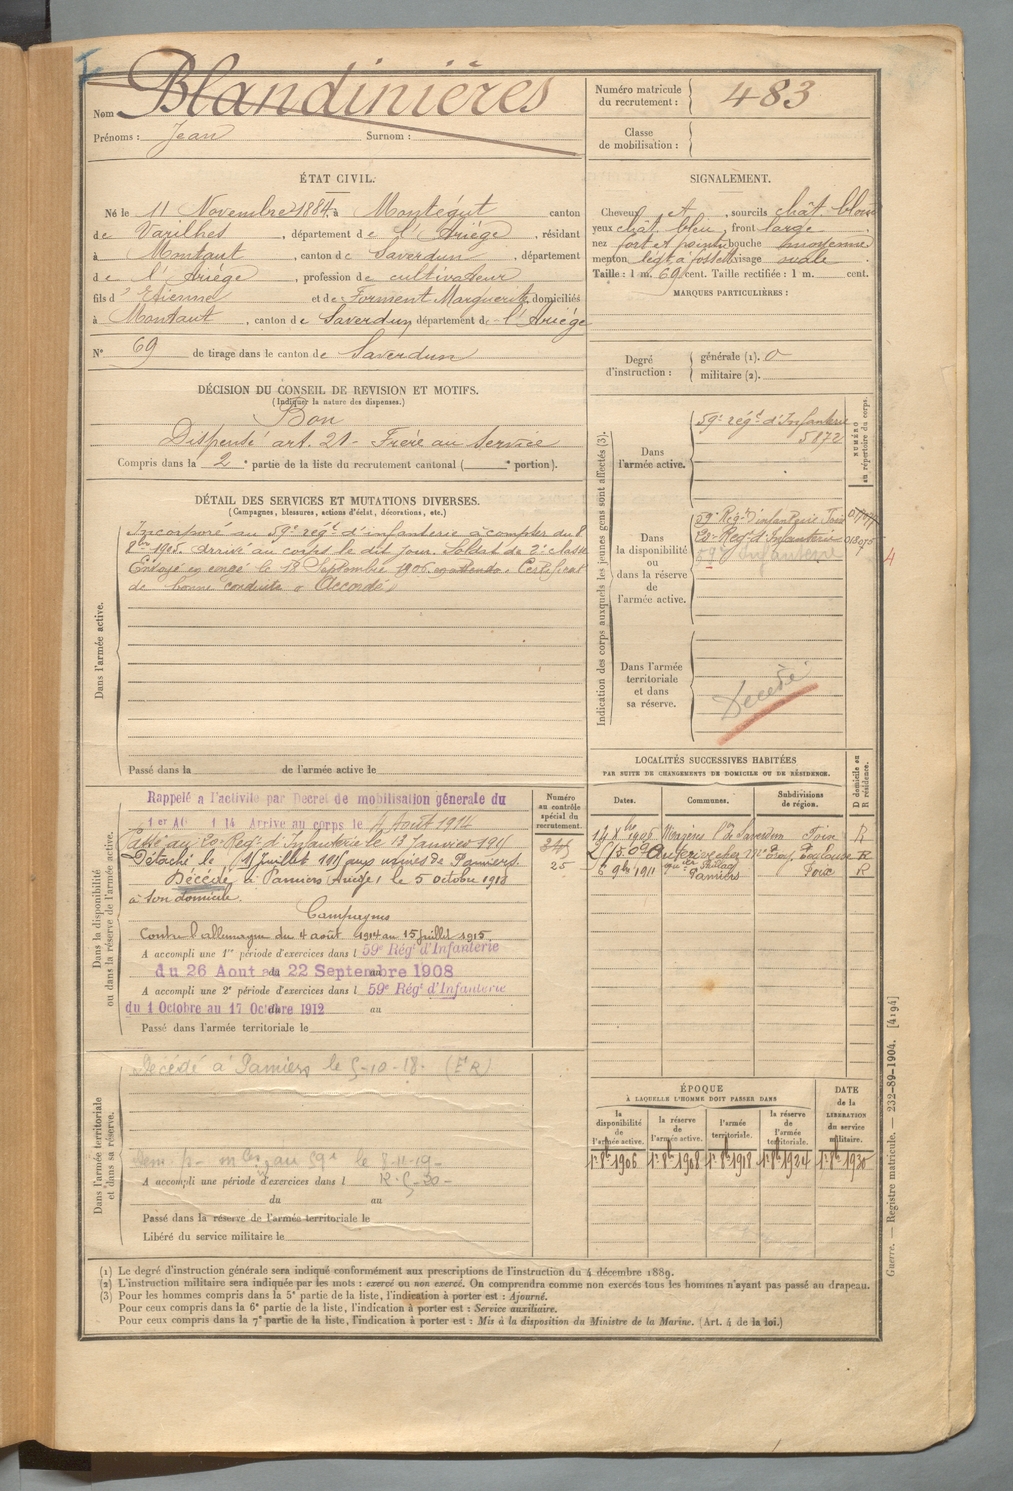 Nom Blandinières
Prénoms : Jean Surnom :
Numéro matricule du recrutement : 483
Classe de mobilisation :
ÉTAT CIVIL.
Né le 11 Novembre 1884, à Montégut canton
de Varilhes, département de l'Ariège, résidant
à Montaut, canton de Saverdun, département
de l'Ariège, profession de cultivateur
fils d'Etienne et de Forment Marguerite, domiciliés
à Montaut, canton de Saverdun, département de l'Ariège
N° 69 de tirage dans le canton de Saverdun
SIGNALEMENT.
Cheveux et sourcils chât. blond
yeux chât. bleu, front large
nez fort et pointu bouche moyenne
menton visage ovale
Taille : 1 m. 69 cent. Taille rectifiée : 1 m. cent.
MARQUES PARTICULIÈRES :
Degré d'instruction : générale (1). 0
militaire (2).
DÉCISION DU CONSEIL DE REVISION ET MOTIFS.
(Indiquer la nature des dispenses.)
Bon
Dispensé art. 21 - Frère au service
Compris dans la 2e partie de la liste du recrutement cantonal ( e portion).
DÉTAIL DES SERVICES ET MUTATIONS DIVERSES.
(Campagnes, blessures, actions d'éclat, décorations, etc.)
Dans l'armée active.
Incorporé au 59e régt d'infanterie à compter du 8
8bre 1905. arrivé au corps le dit jour. Soldat de 2e classe
Envoyé en congé le 18 Septembre 1906. Certificat
de bonne conduite « Accordé »
Passé dans la de l'armée active le
Indication des corps auxquels les jeunes gens sont affectés (3).
NUMÉRO au répertoire du corps.
Dans l'armée active.
59e régt d'Infanterie
5872
Dans la disponibilité ou dans la réserve de l'armée active.
59e Régt d'infanterie Foix
Régt d'Infanterie 018075
59e Infanterie
4
Dans l'armée territoriale et dans sa réserve.
Décédé
Dans la disponibilité ou dans la réserve de l'armée active.
Numéro au contrôle spécial du recrutement.
25
Rappelé a l'activite par Decret de mobilisation génerale du
1er Aout 1914 Arrive au corps le 4 Août 1914
Passé au 20e Régt d'Infanterie le 13 Janvier 1915
Détaché le 15 Juillet 1915 aux usines de Pamiers.
Décédé à Pamiers (Ariège) le 5 octobre 1918
à son domicile.
Campagnes
Contre l'allemagne du 4 août 1914 au 15 juillet 1915
A accompli une 1re période d'exercices dans l 59e Régt d'Infanterie
du 26 Aout au 22 Septembre 1908
A accompli une 2e période d'exercices dans l 59e Régt d'Infanterie
du 1 Octobre au 17 Octobre 1912 au
Passé dans l'armée territoriale le
LOCALITÉS SUCCESSIVES HABITÉES
PAR SUITE DE CHANGEMENTS DE DOMICILE OU DE RÉSIDENCE.
D domicile ou R résidence.
Dates. Communes. Subdivisions de région.
14 Xbre 1906 Mazères Cton de Saverdun Foix R
Toulouse R
6 9bre 1911 Pamiers Foix R
Dans l'armée territoriale et dans sa réserve.
Décédé à Pamiers le 5-10-18. (Et R)
au 59e le 8-11-19-
A accompli une période d'exercices dans l R. 5-20-
du au
Passé dans la réserve de l'armée territoriale le
Libéré du service militaire le
ÉPOQUE
À LAQUELLE L'HOMME DOIT PASSER DANS
la disponibilité de l'armée active.
la réserve de l'armée active.
l'armée territoriale.
la réserve de l'armée territoriale.
DATE de la LIBÉRATION du service militaire.
1er 8bre 1906 1er 8bre 1908 1er 8bre 1918 1er 8bre 1924 1er 8bre 1930
(1) Le degré d'instruction générale sera indiqué conformément aux prescriptions de l'instruction du 4 décembre 1889.
(2) L'instruction militaire sera indiquée par les mots : exercé ou non exercé. On comprendra comme non exercés tous les hommes n'ayant pas passé au drapeau.
(3) Pour les hommes compris dans la 5e partie de la liste, l'indication à porter est : Ajourné.
Pour ceux compris dans la 6e partie de la liste, l'indication à porter est : Service auxiliaire.
Pour ceux compris dans la 7e partie de la liste, l'indication à porter est : Mis à la disposition du Ministre de la Marine. (Art. 4 de la loi.)
Guerre. — Registre matricule. — 232-89-1904. [4194]